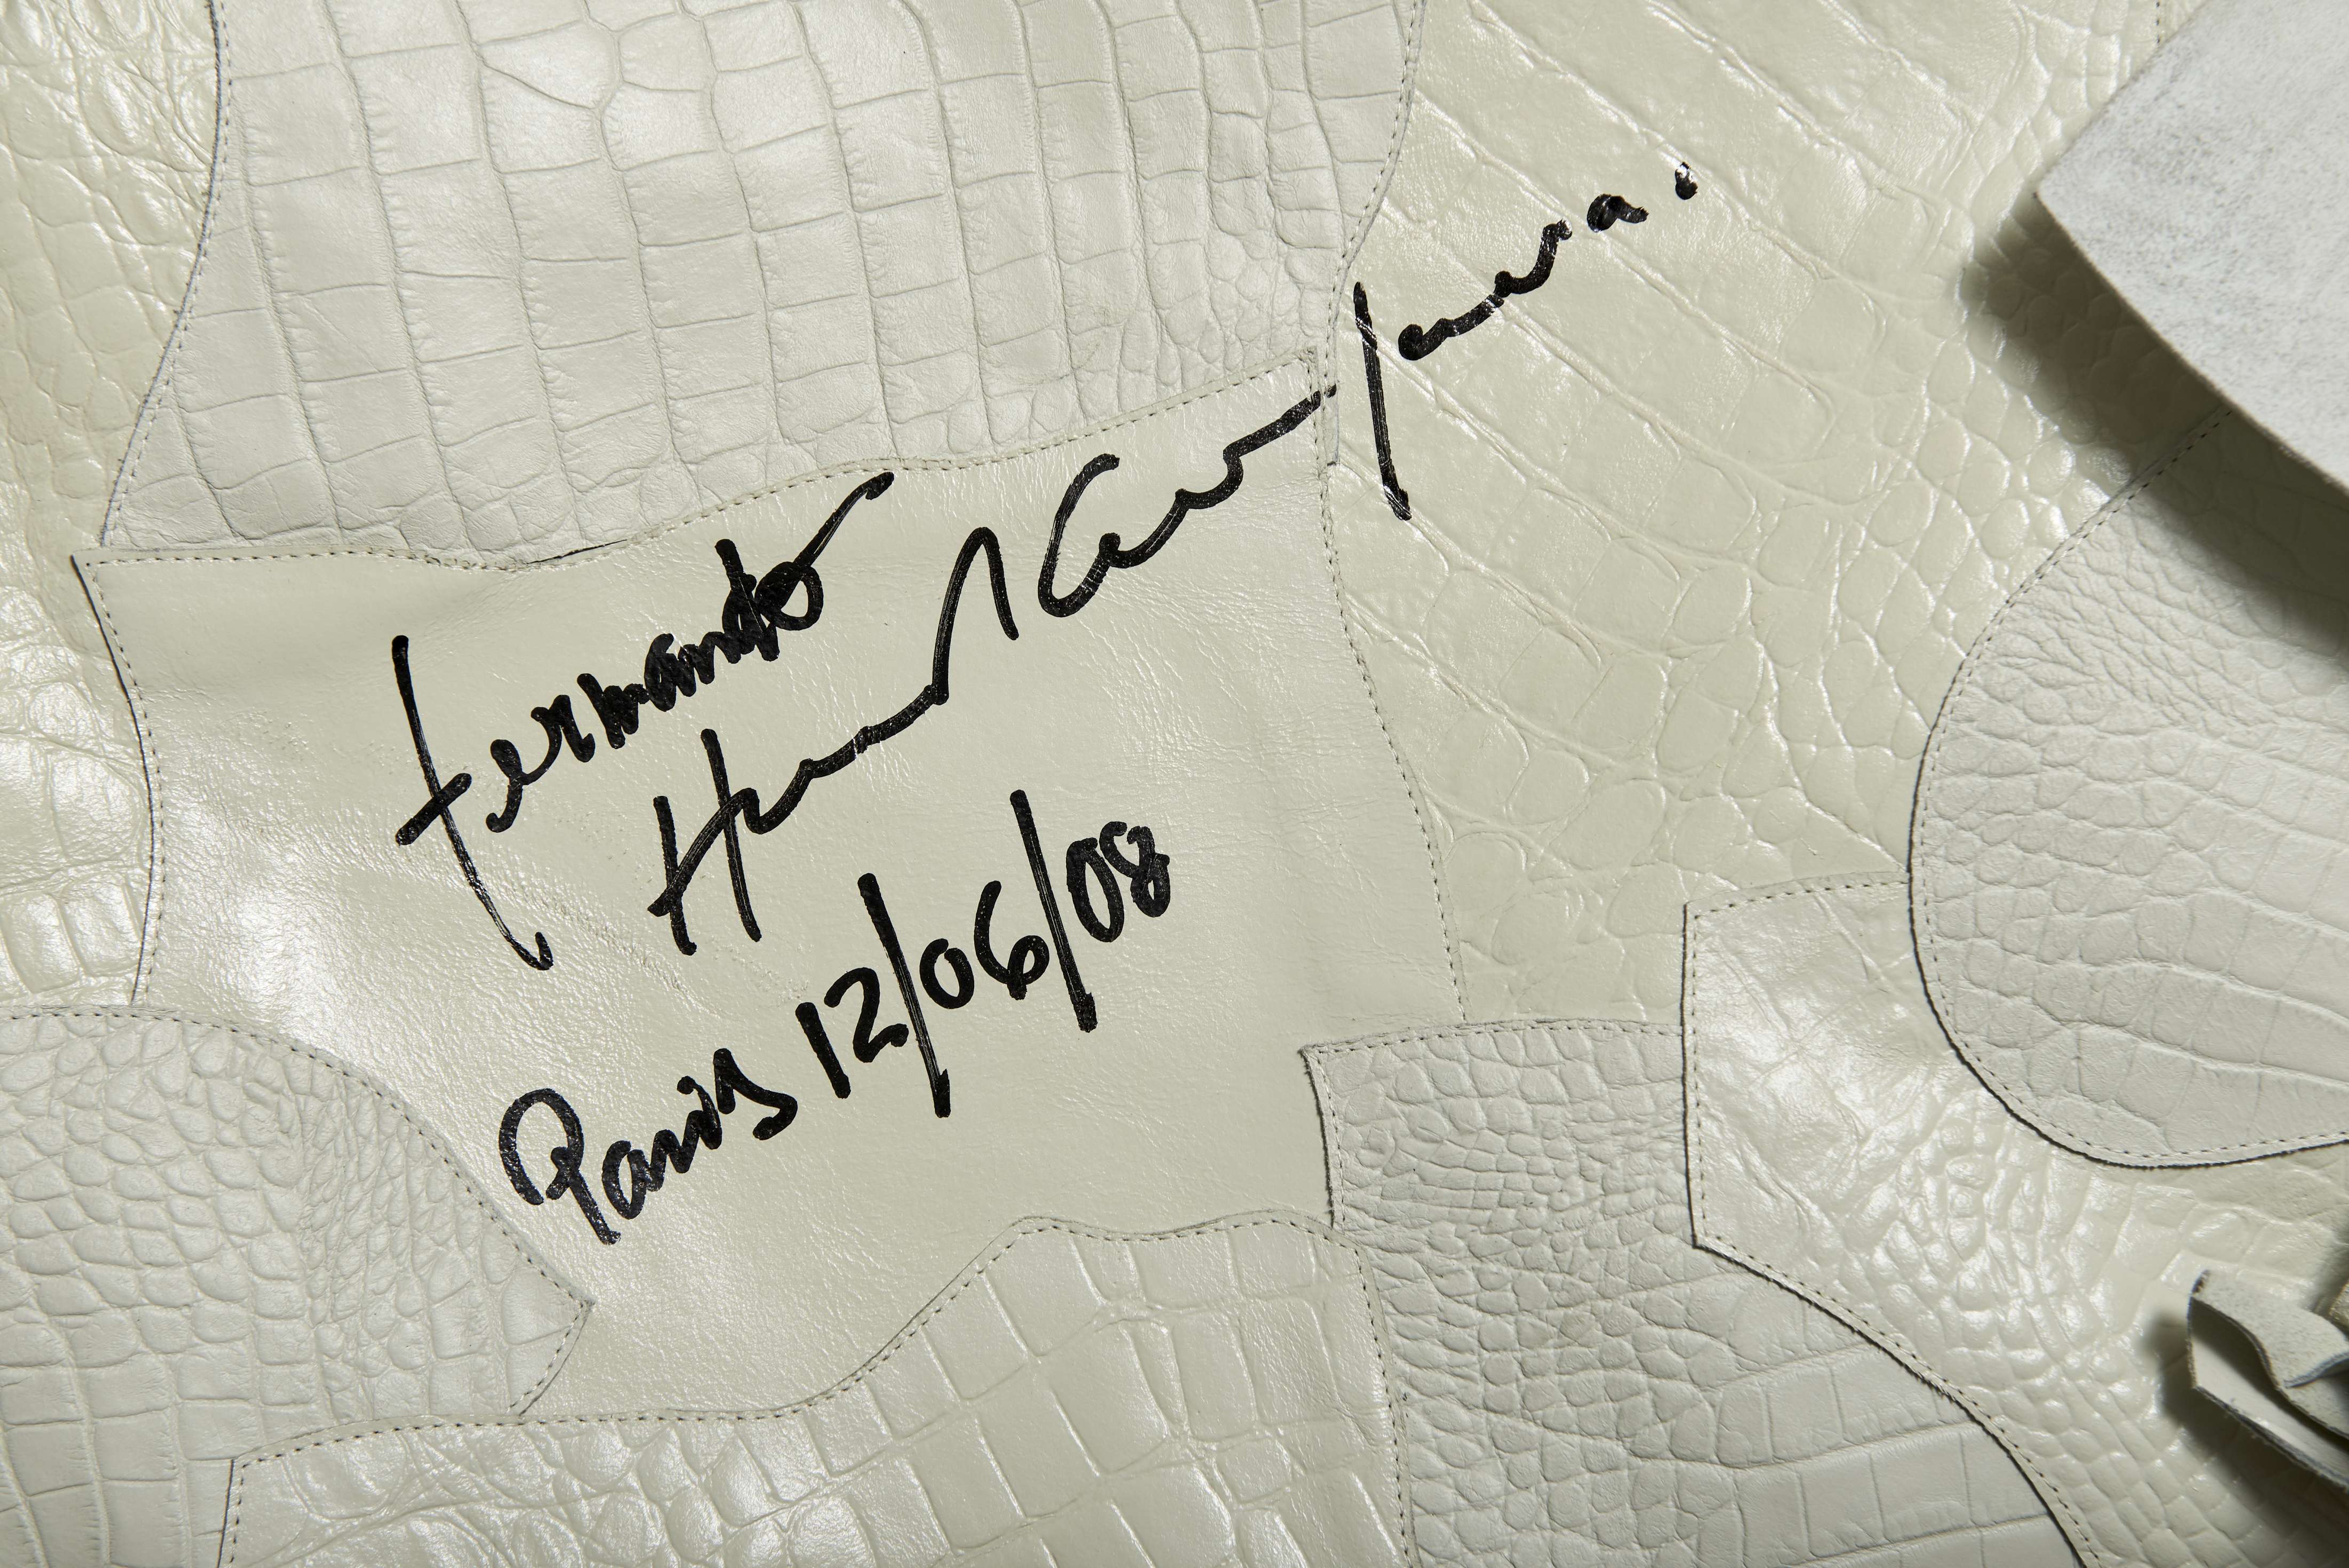 Fernando
Humberto Campana.
Paris 12/06/08